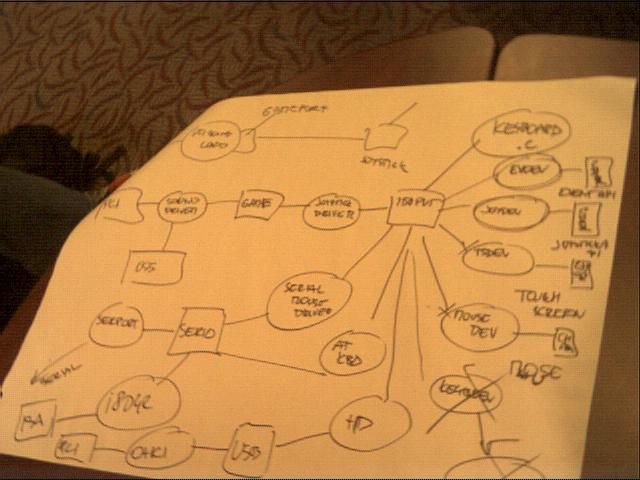 GAMEPORT
JOYSTICK
KEYBOARD
.C
EVDEV
EVENT API
PCI
SOUND
DRIVER
GAME
JOYSTICK
DRIVER
INPUT
JOYDEV
JOYSTICK
API
OSS
TSDEV
TOUCH
SCREEN
SERIAL
MOUSE
DRIVER
SERPORT
SERIO
MOUSE
DEV
AT
KBD
SERIAL
MOUSE
I8042
KEYBDEV
HID
ISA
PCI
OHCI
USB